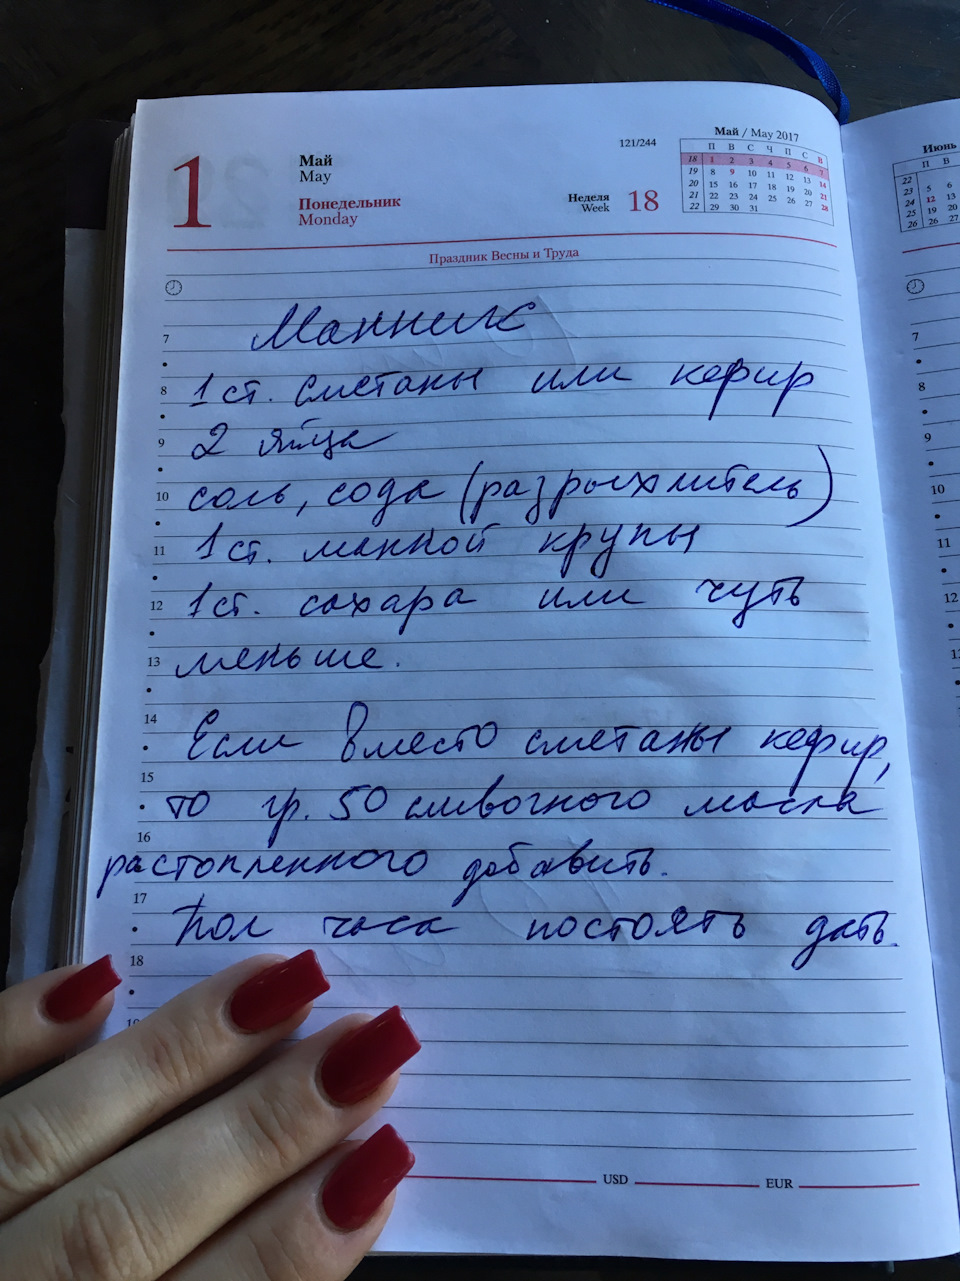 1
Май
May
Понедельник
Monday
121/244
Неделя
Week
18
Май / May 2017
П В С Ч П С В
18 1 2 3 4 5 6 7
19 8 9 10 11 12 13 14
20 15 16 17 18 19 20 21
21 22 23 24 25 26 27 28
22 29 30 31
Праздник Весны и Труда
Манник
7
8 1 ст. сметаны или кефир
9 2 яйца
10 соль, сода (разрыхлитель)
11 1 ст. манной крупы
12 1 ст. сахара или чуть
13 меньше.
14
Если вместо сметаны кефир,
15
то гр. 50 сливочного масла
16
растопленного добавить.
17
Пол часа постоять дать.
18
USD
EUR
Июнь
П В
22
23 5 6
24 12 13
25 19 20
26 26 27
7
8
9
10
11
12